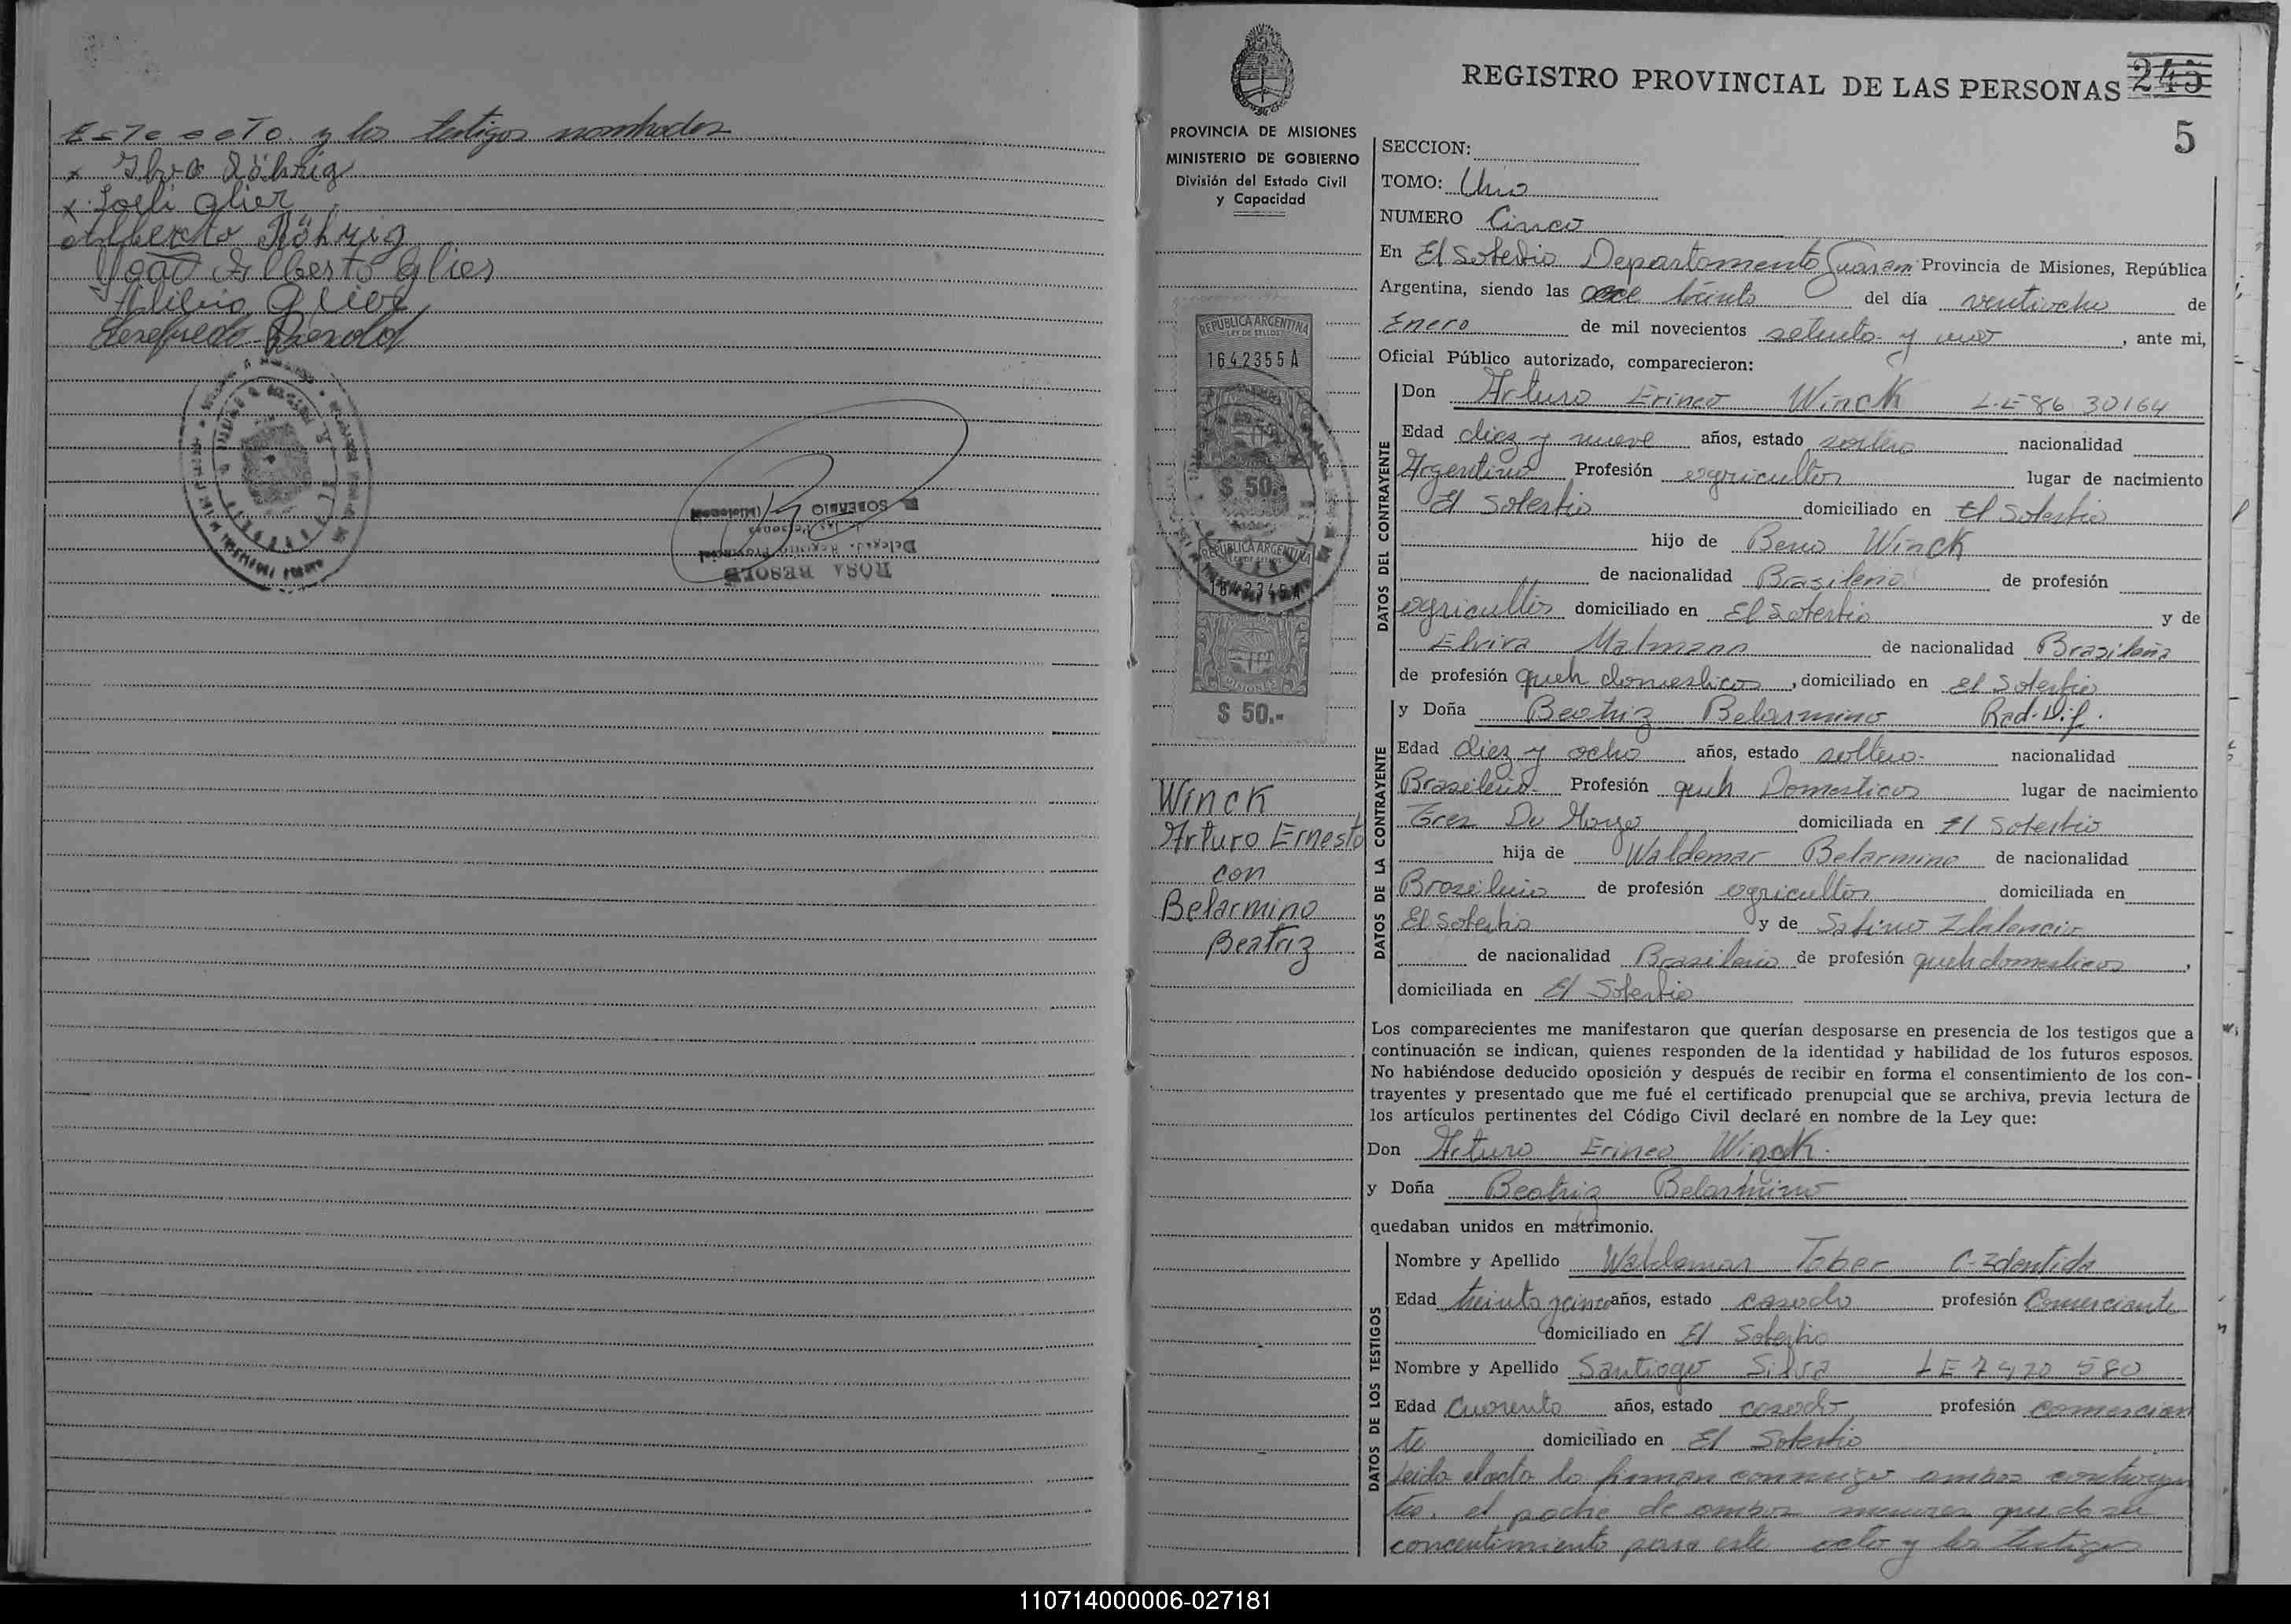 este acto y los testigos nombrados
x Ilvo Röhrig
x Loeli Glier
Alberto Röhrig
João Alberto Glier
Glier
ROSA BESOLE
Delegada Registro Provincial
de las Personas
SOBERBIO (Misiones)
REGISTRO PROVINCIAL DE LAS PERSONAS 245
5
PROVINCIA DE MISIONES
MINISTERIO DE GOBIERNO
División del Estado Civil
y Capacidad
REPUBLICA ARGENTINA
LEY DE SELLOS
1642355 A
$ 50.-
REPUBLICA ARGENTINA
MISIONES
$ 50.-
Winck
Arturo Ernesto
con
Belarmino
Beatriz
SECCION:
TOMO: Uno
NUMERO Cinco
En El Soberbio Departamento Guarani Provincia de Misiones, República
Argentina, siendo las once treinta del día ventiocho de
Enero de mil novecientos setenta y uno, ante mi,
Oficial Público autorizado, comparecieron:
DATOS DEL CONTRAYENTE
Don Arturo Erineo Winck L.E 86 30164
Edad diez y nueve años, estado soltero nacionalidad
Argentino Profesión agricultor lugar de nacimiento
El Soberbio domiciliado en El Soberbio
hijo de Beno Winck
de nacionalidad Brasileño de profesión
agricultor domiciliado en El Soberbio y de
Elvira Malmann de nacionalidad Brasileña
de profesión queh domesticos, domiciliado en El Soberbio
DATOS DE LA CONTRAYENTE
y Doña Beatriz Belarmino
Edad diez y ocho años, estado soltera nacionalidad
Brasileña Profesión queh Domesticos lugar de nacimiento
Tres De Mayo domiciliada en El Soberbio
hija de Waldemar Belarmino de nacionalidad
Brasileño de profesión agricultor domiciliada en
El Soberbio y de
de nacionalidad Brasileña de profesión queh domesticos,
domiciliada en El Soberbio
Los comparecientes me manifestaron que querían desposarse en presencia de los testigos que a
continuación se indican, quienes responden de la identidad y habilidad de los futuros esposos.
No habiéndose deducido oposición y después de recibir en forma el consentimiento de los con-
trayentes y presentado que me fué el certificado prenupcial que se archiva, previa lectura de
los artículos pertinentes del Código Civil declaré en nombre de la Ley que:
Don Arturo Erineo Winck.
y Doña Beatriz Belarmino
quedaban unidos en matrimonio.
DATOS DE LOS TESTIGOS
Nombre y Apellido Waldemar Taber C-Identida
Edad treinta y cinco años, estado casado profesión Comerciante
domiciliado en El Soberbio
Nombre y Apellido Santiago Silva LE 7420 580
Edad Cuarenta años, estado casado profesión comercian
te domiciliado en El Soberbio
Leida el acta la firman conmigo ambos contrayen
tes, el padre de ambos menores que da su
concentimiento para este acto y los testigos
110714000006-027181